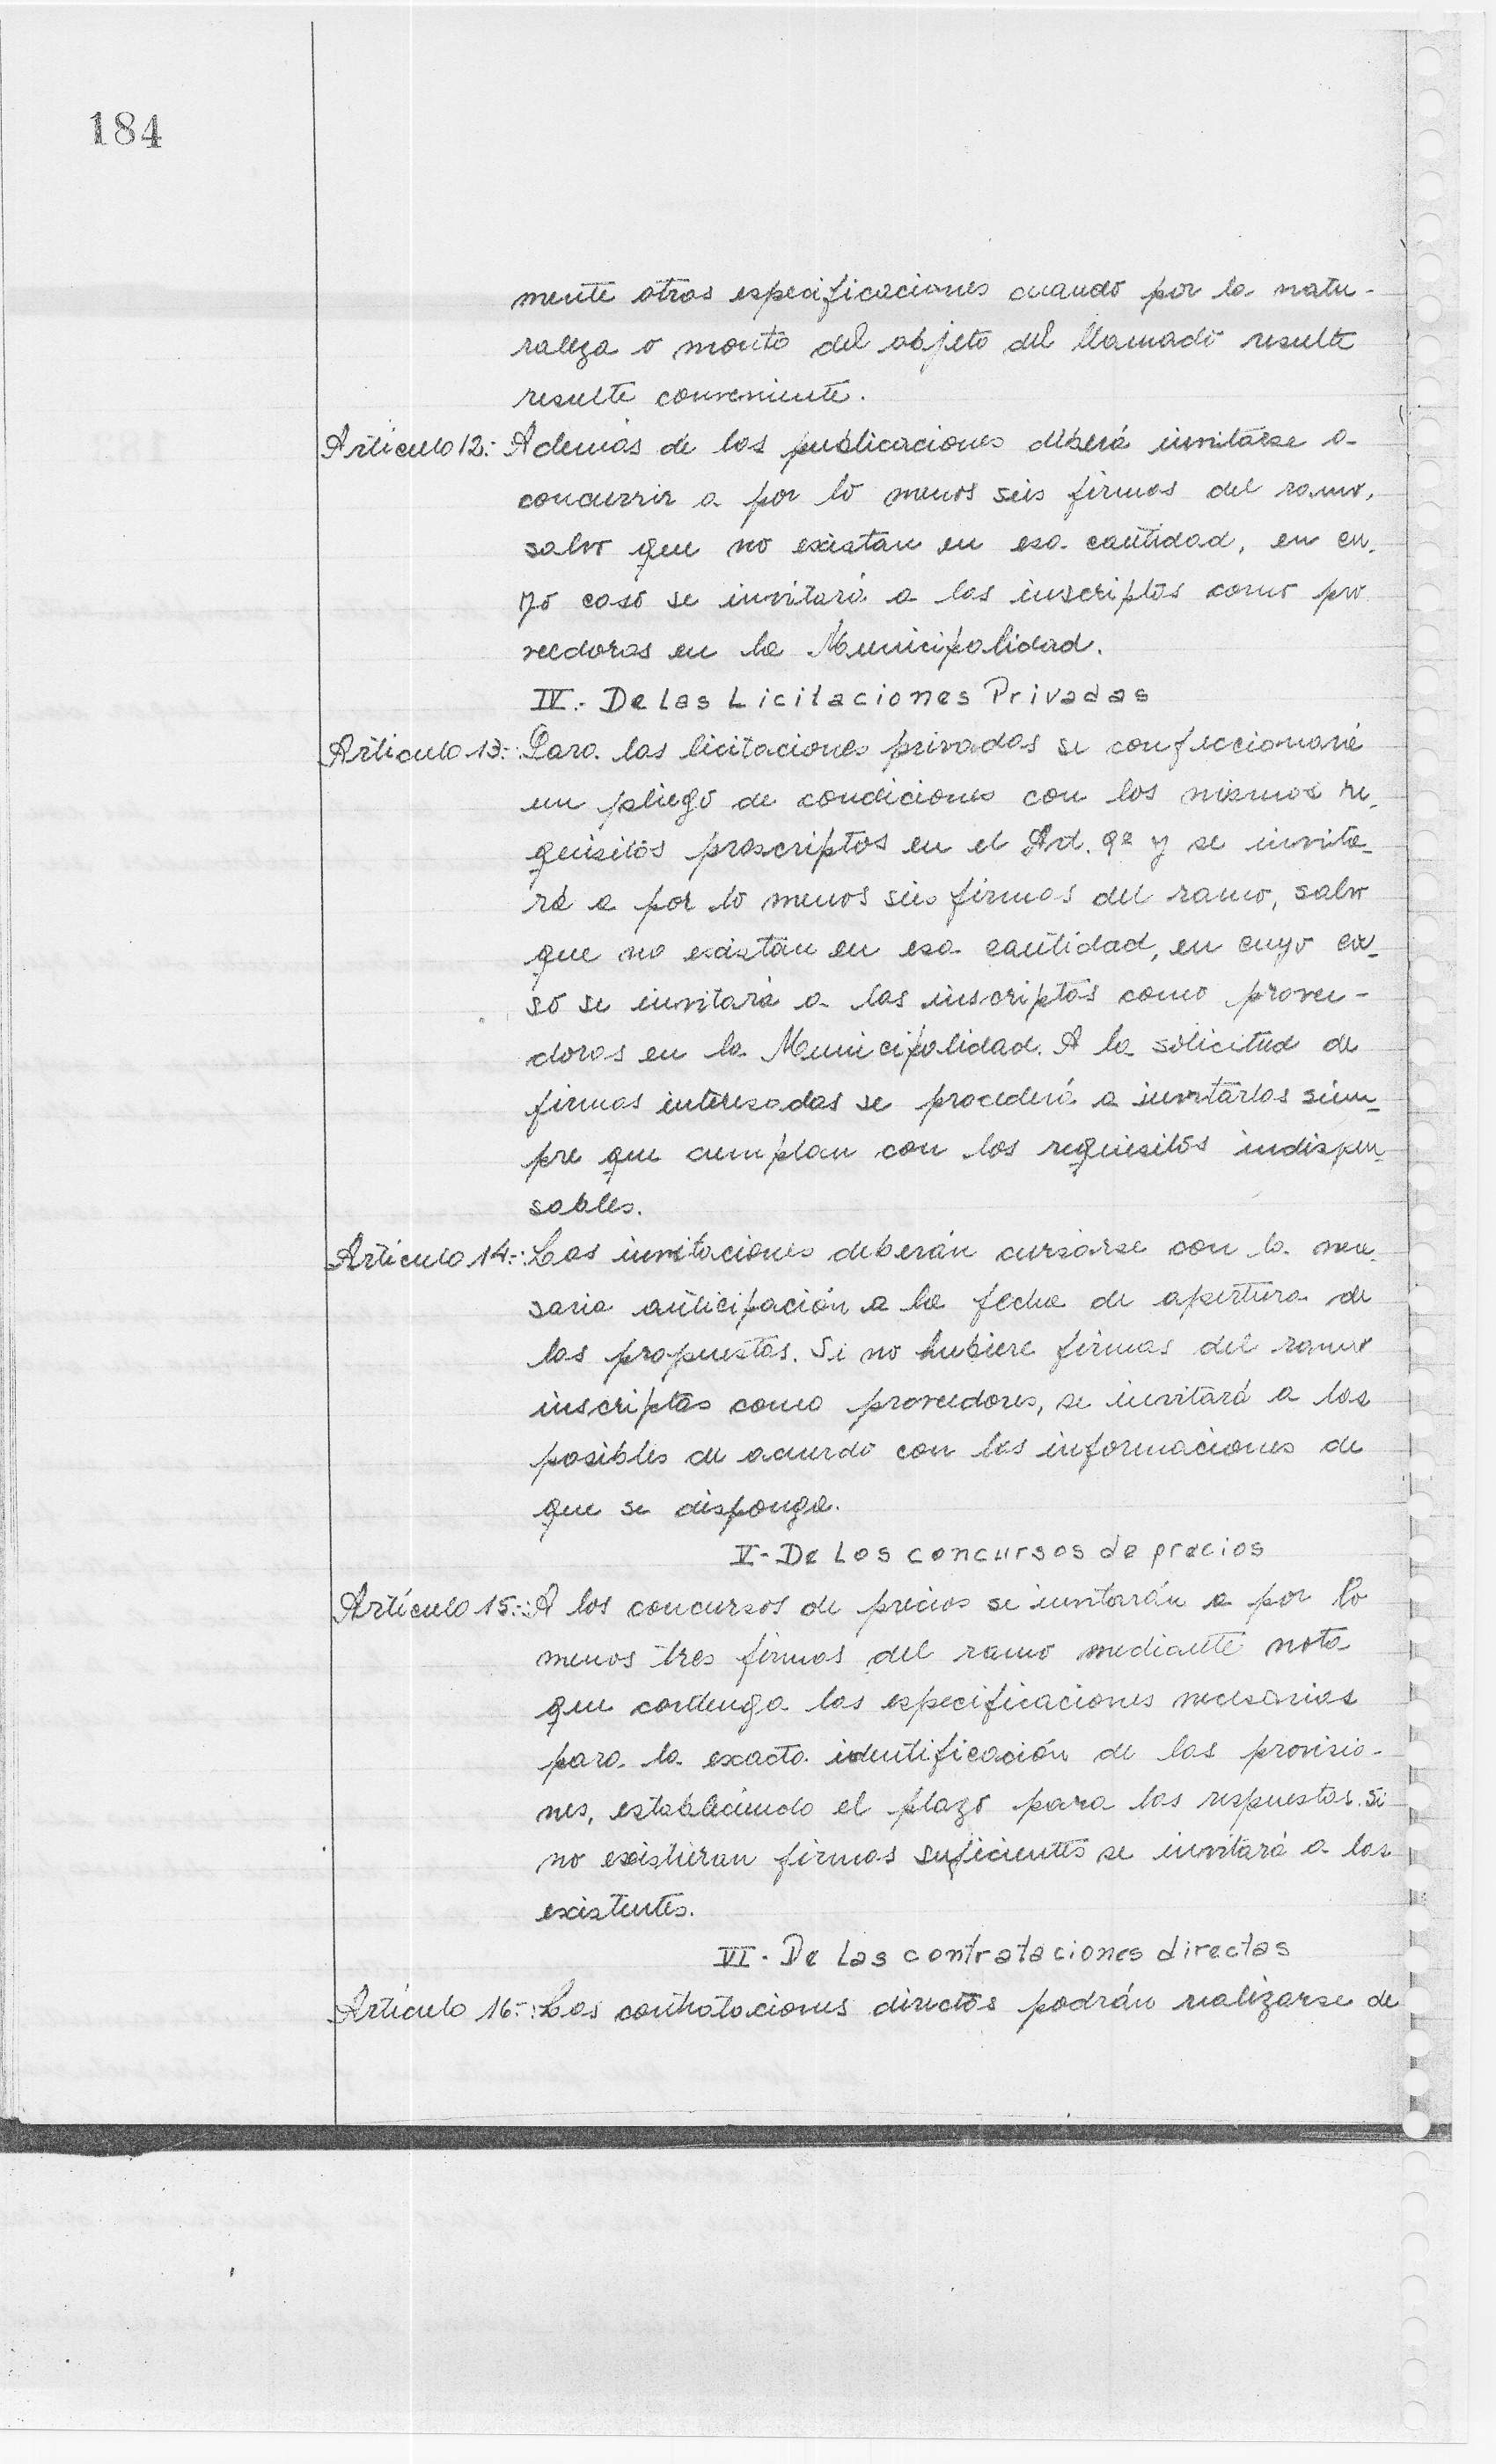 184
mente otras especificaciones cuando por la natu-
raleza o monto del objeto del llamado resulte
resulte conveniente.
Artículo 12:- Además de las publicaciones deberá invitarse a
concurrir a por lo menos seis firmas del ramo,
salvo que no existan en esa cantidad, en cu-
yo caso se invitará a las inscriptas como pro
veedoras en la Municipalidad.
IV.- De las Licitaciones Privadas
Artículo 13:- Para las licitaciones privadas se confeccionará
un pliego de condiciones con los mismos re-
quisitos proscriptos en el Art. 9º y se invita-
rá a por lo menos seis firmas del ramo, salvo
que no existan en esa cantidad, en cuyo ca-
so se invitará a las inscriptas como provee-
doras en la Municipalidad. A la solicitud de
firmas interesadas se procederá a invitarlas siem-
pre que cumplan con los requisitos indispen-
sables.
Artículo 14:- Las invitaciones deberán cursarse con la nece-
saria anticipación a la fecha de apertura de
las propuestas. Si no hubiere firmas del ramo
inscriptas como proveedores, se invitará a las
posibles de acuerdo con las informaciones de
que se disponga.
V- De Los concursos de precios
Artículo 15:- A los concursos de precios se invitarán a por lo
menos tres firmas del ramo mediante nota
que contenga las especificaciones necesarias
para la exacta identificación de las provisio-
nes, estableciendo el plazo para las respuestas. Si
no existieran firmas suficientes se invitará a las
existentes.
VI- De Las contrataciones directas
Artículo 16:- Las contrataciones directas podrán realizarse de